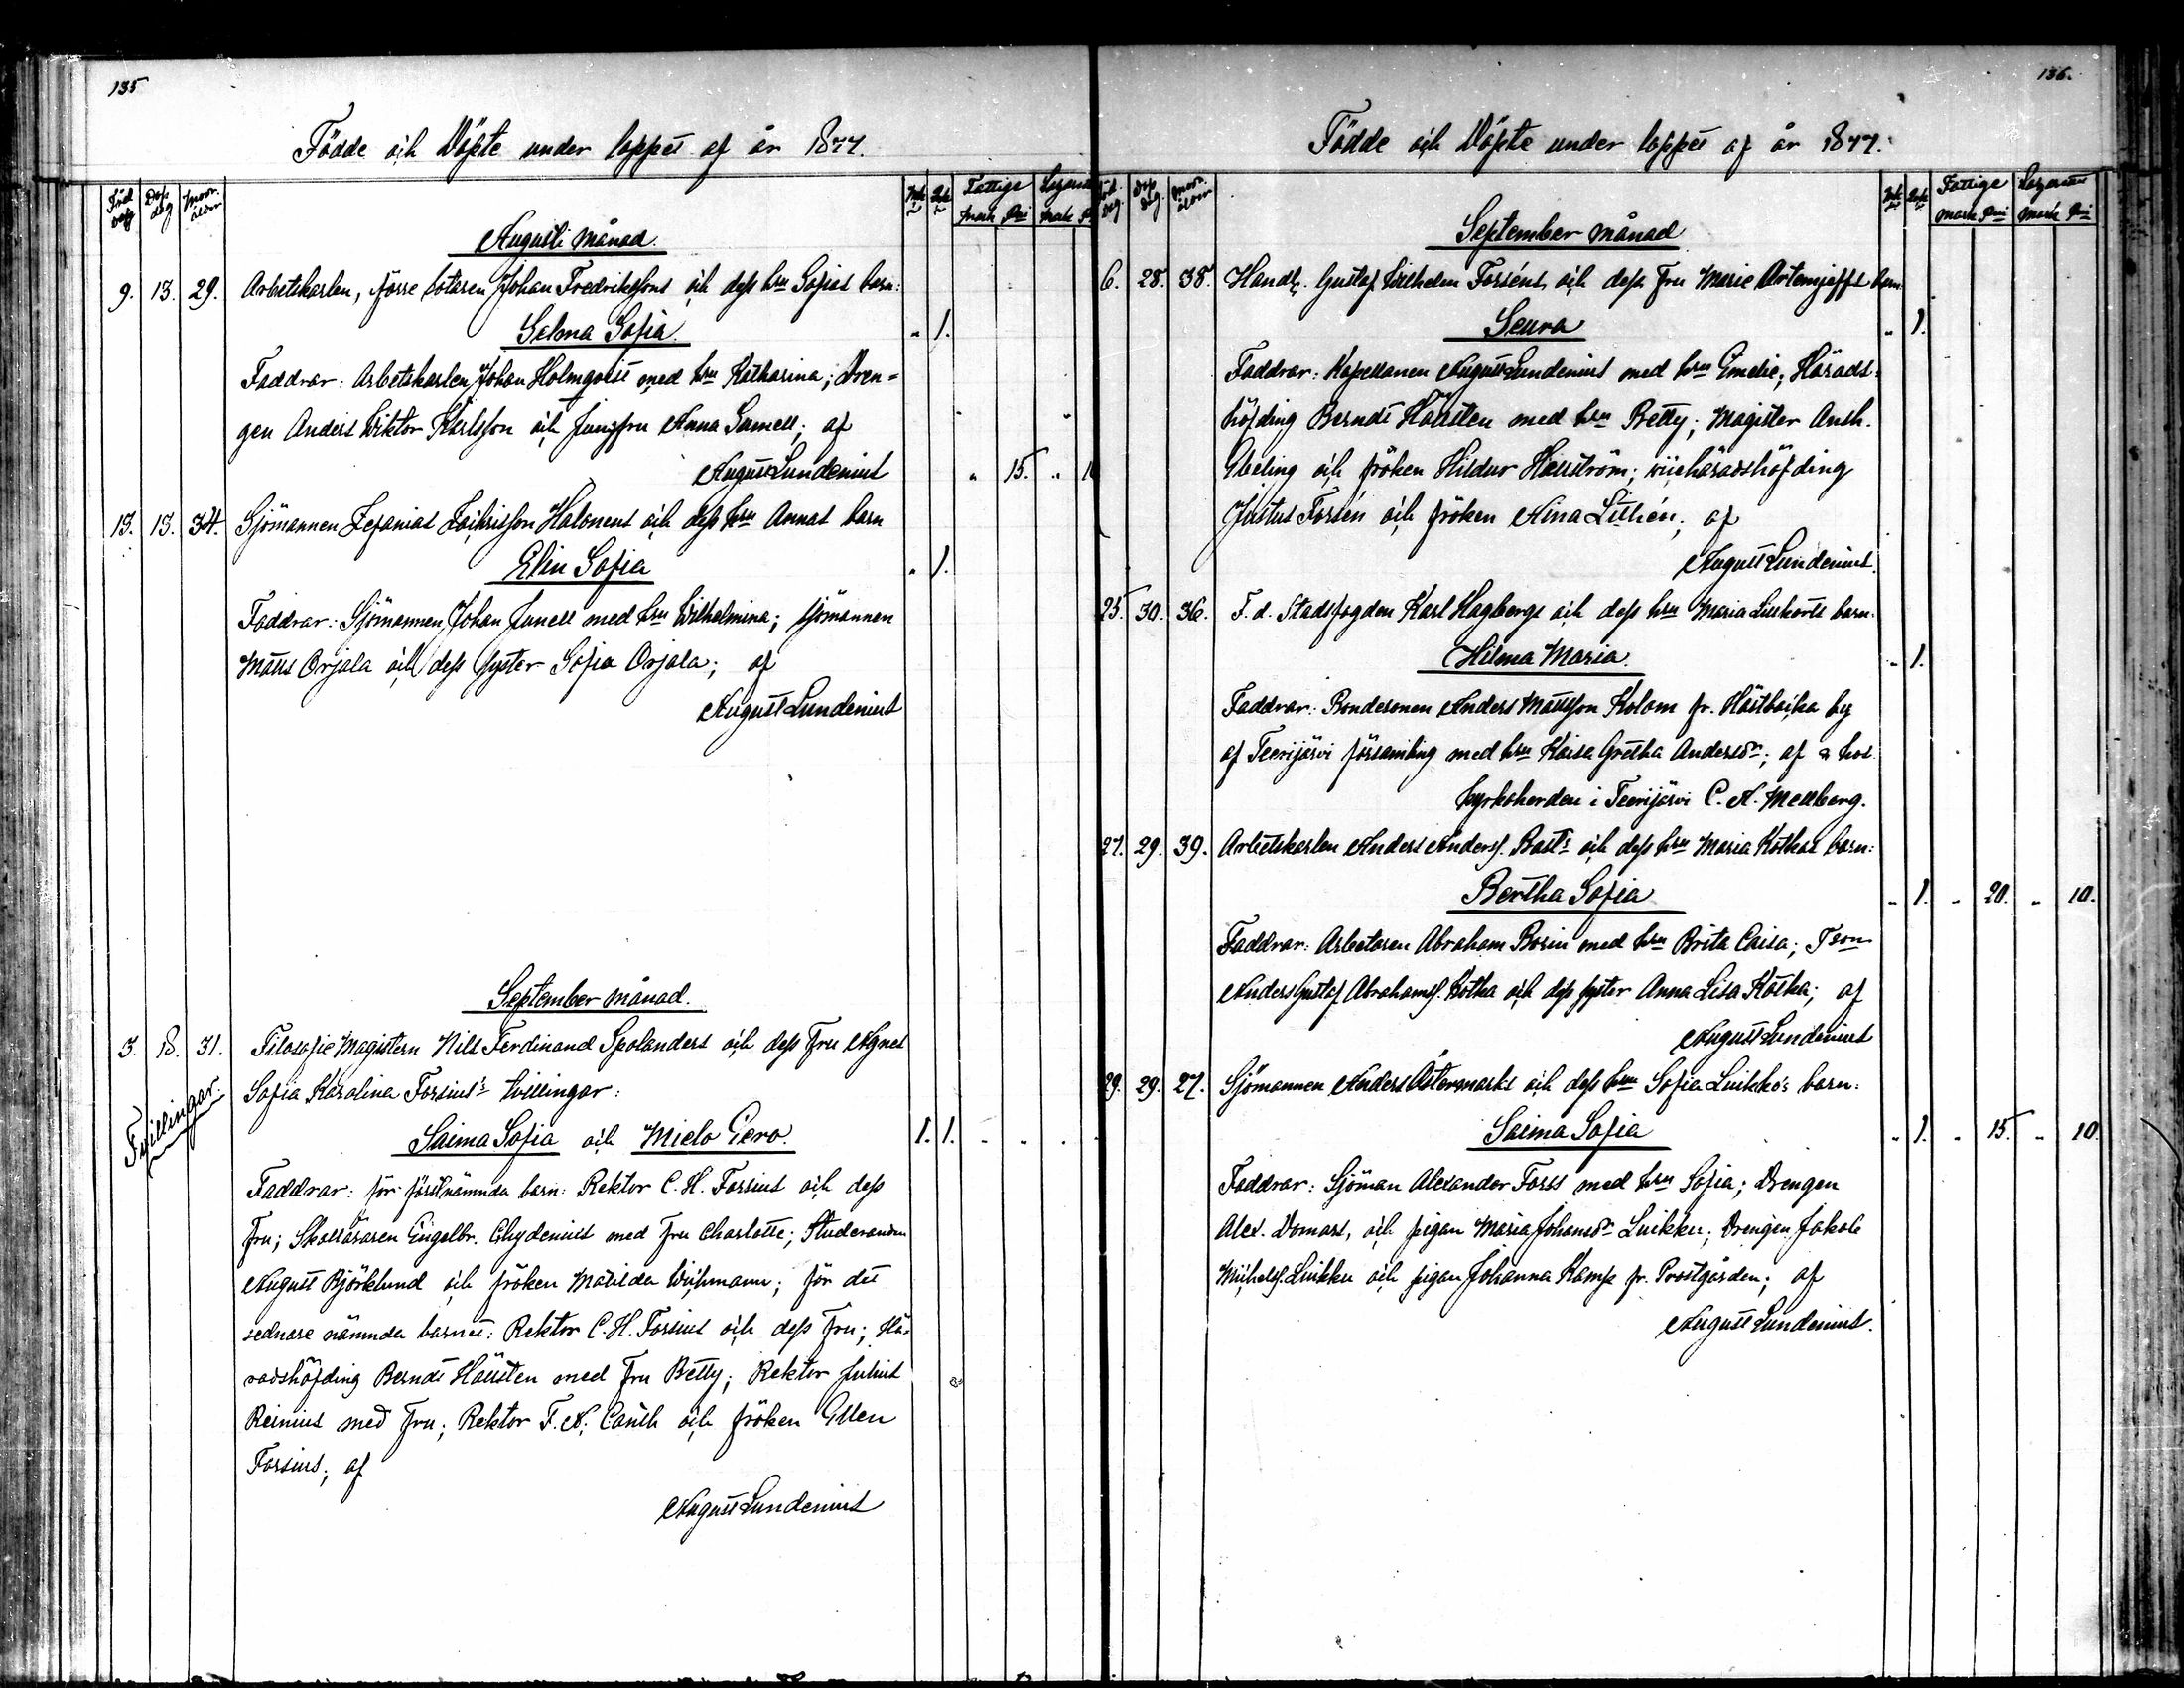 135
Födde och Döpte under loppet af år 1877.
Föd. dag Dop dag Mor. ålder Fattige Lazaret
mark Pni mark
Augusti månad.
9. 13. 29. Arbetskarlen, förre Johan Fredrikssons och dess hru Sofias barn:
Selma Sofia. " 1.
Faddrar: Arbetskarlen Johan Holmqvist med hru Katharina; Dren-
gen Anders Wiktor Karlsson och Jungfru Anna Samell; af
August Lundenius " 15. "
13. 13. 34. Sjömannen Zefanias Zachrisson Halonens och dess hru Annas barn
Elin Sofia " 1.
Faddrar: Sjömannen Johan Junell med hru Wilhelmina; sjömannen
Matts Orjala och dess syster Sofia Orjala; af
August Lundenius
September månad.
3. 18. 31. Filosofie Magistern Nils Ferdinand Spolanders och dess Fru Agnes
Sofia Karolina Forsius's tvillingar:
Tvillingar.
Saima Sofia och Mielo Eero. 1. 1. " " "
Faddrar: för förstnämnda barn: Rektor C. H. Forsius och dess
Fru; Skolläraren Engelbr. Chydenius med Fru Charlotte; Studeranden
August Björklund och fröken Matilda Wichmann; för det
sednare nämnda barnet: Rektor C. H. Forsius och dess Fru; Hä-
radshöfding Berndt Hällsten med Fru Betty; Rektor Julius
Reinius med Fru; Rektor F. A. och fröken Ellen
Forsius; af
August Lundenius
136.
Födde och Döpte under loppet af år 1877.
Föd. dag. Dop dag. Mor. ålder Fattige Lazarett
mark Pni Mark Pni
September månad
6. 28. 38. Handl. Gustaf Wilhelm Forséns och dess Fru Marie Artemjeffs barn
" 1.
Faddrar: Kapellanen August Lundenius med hru Emelie; Härads-
höfding Berndt Hällsten med hru Betty; Magister Ansh.
Ebeling och fröken Hildur Hällström; vicehäradshöfding
Justus Forsén och fröken Aina Lithén; af
August Lundenius.
25. 30. 36. F. d. Stadsfogden Karl Hagbergs och dess hru Maria barn.
Hilma Maria. " 1.
Faddrar: Bondesonen Anders Mattsson Kolam fr. Hästbacka by
af Teerijärvi församling med hru Kaisa Gretha Andersdr; af & hos
kyrkoherden i Teerijärvi C. A. Mellberg.
27. 29. 39. Arbetskarlen Anders Anderss. Bast's och dess hru Maria Kotkas barn:
Bertha Sofia " 1. " 20. " 10.
Faddrar: Arbetaren Abraham Rosin med hru Brita Caisa; Tson
Anders Gustaf Abrahamss. Kotka och dess syster Anna Lisa Kotka; af
August Lundenius
29. 29. 27. Sjömannen Anders Östermarks och dess hru Sofia Luikko's barn:
Saima Sofia " 1. " 15. " 10.
Faddrar: Sjöman Alexander Forss med hru Sofia; Drengen
Alex. Domars, och pigan Maria Johansdr Luikku; Drengen Jakob
Michelss. Luikku och pigan Johanna Kamp fr. Prostgården; af
August Lundenius.